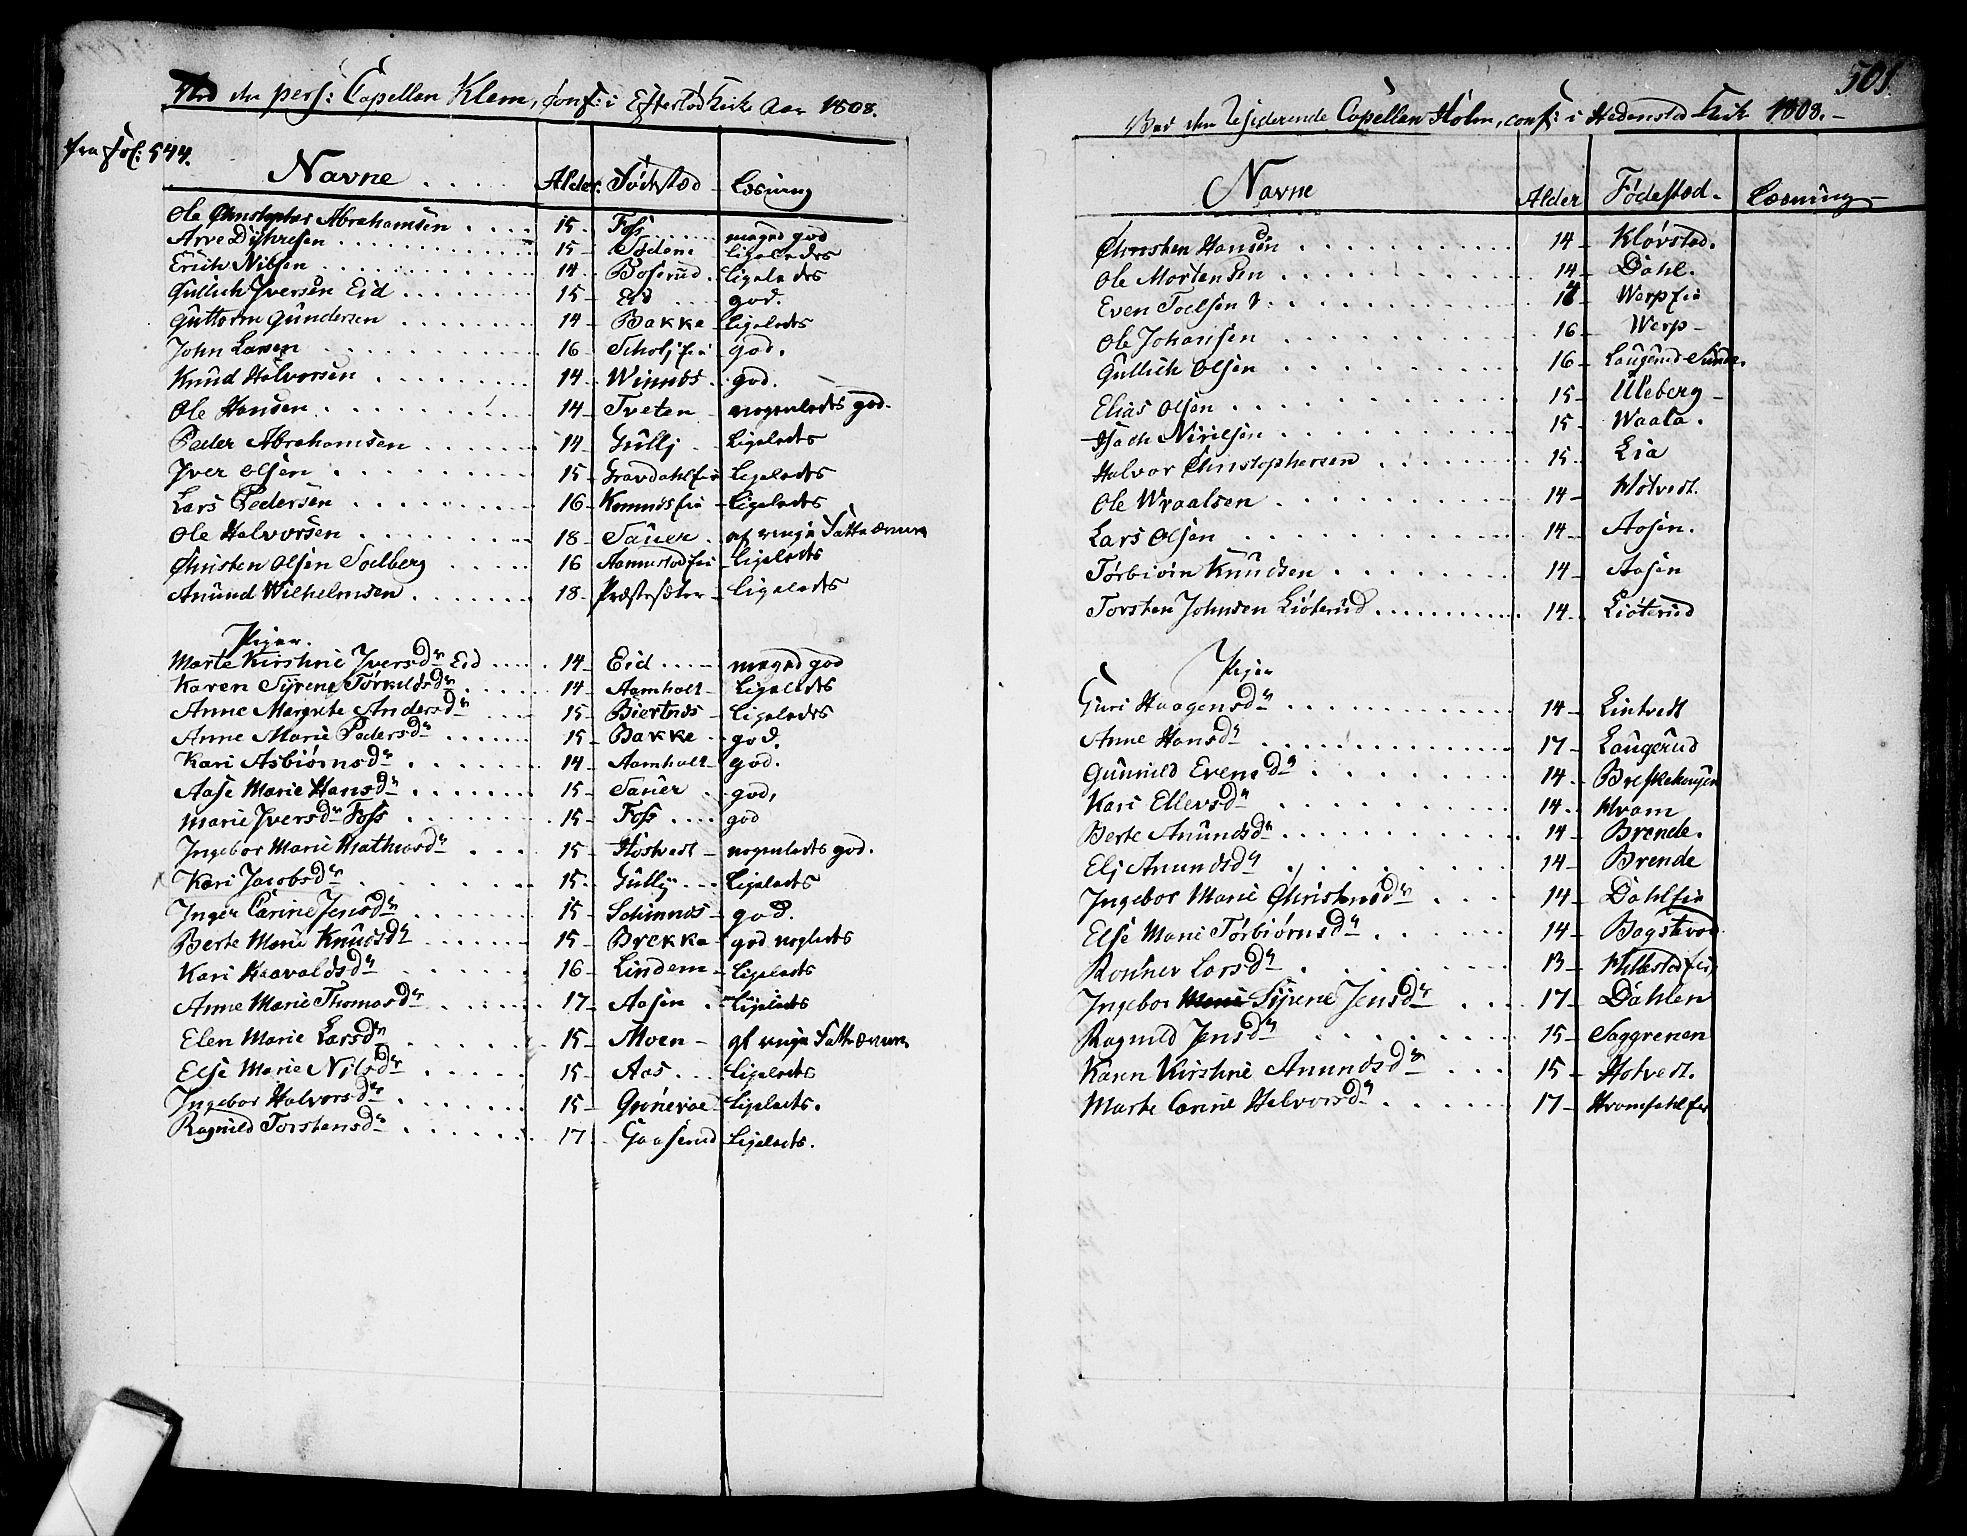 Ved den pers: Capellan Klem, conf: i Efterlød Kirke Aar 1808.
fra Fol: 544.
Navne . . . . . Alder. Fødested Læsning
Ole Christopher Abrahamsen . . . . 15 Foss . . . . meged god
Arve Dyhresen . . . . 15 Sødem ligeledes
Erich Nilsen . . . . 14 Boserud ligeledes
Gullich Jversen Eid . . . . 15 Eid . . . . god.
Guttorm Gundersen . . . . 14 Bakke ligeledes
John Larsen . . . . 16 god.
Knud Halvorsen . . . . 14 Winnæs god.
Ole Hansen . . . . 14 Tveten nogenledes god.
Peder Abrahamsen . . . . 14 Gullj ligeledes
Jver Olsen . . . . 15 Gravdahlfei ligeledes
Lars Pedersen . . . . 16 Komnæsfei ligeledes
Ole Halvorsen . . . . 18 Sauer af ringe Fatteævne
Christen Olsen Soelberg . . . . 16 Aannestadfei ligeledes
Anund Wilhelmsen . . . . 18 Præstesæter ligeledes
Piger.
Marte Kirstine Jversdr Eid . . . . 14 Eid . . . . meged god
Karen Syrene Törkildsdr . . . . 14 Aamholt ligeledes
Anne Margrete Andersdr . . . . 15 Biertnæs ligeledes
Anne Marie Pedersdr . . . . 15 Bakke god.
Kari Asbiörnsdr . . . . 14 Aamholt god.
Aase Marie Hansdr . . . . 15 Sauer god,
Marie Jversdr Foss . . . . 15 Foss . . . . god
Ingebor Marie Mathiasdr . . . 15 Hostvedt nogenledes god.
Kari Jacobsdr . . . . 15 Gullj . . . ligeledes
Inger Carine Jensdr . . . . 15 Schinnæs god.
Berte Marie Knudsdr . . . . 15 Brekke god nogledes
Kari Haavaldsdr . . . . 16 Lindem ligeledes
Anne Marie Thomasdr . . . . 17 Aasen ligeledes
Elen Marie Larsdr . . . . 15 Moen af ringe Fatteævne
Else Marie Nilsdr . . . . 15 Aas . . . ligeledes
Ingebor Halvorsdr . . . . 15 ligeledes.
Ragnild Torstensdr . . . . 17 Gaaserud ligeledes.
501.
Ved den residerende Capellan Holm, conf: i Hedenstad Kirke 1808.
Navne Alder Fødested. Læsning
Christen Hansen . . . . 14 Kløvstad.
Ole Mortensen . . . . 14 Dahl.
Even Toelsen . . . . Werpfei
Ole Johansen . . . . 16 Werp
Gullich Olsen . . . . 16 Laugerud
Elias Olsen . . . . 15 Ulleberg
Nirilsen . . . . 15 Waala.
Halvor Christophersen . . . . 15 Lia
Ole Wraalsen . . . . 14
Lars Olsen . . . . 14 Aasen.
Törbiörn Knudsen . . . . 14 Aasen
Torsten Johnsen Liöterud . . . . 14 Liöterud
Piger
Guri Haagensdr . . . . 14 Lintvedt
Anne Hansdr . . . . 17 Laugerud
Gunnild Evensdr . . . . 14
Kari Ellevsdr . . . . 14 Hvam
Berte Anundsdr . . . . 14 Brende.
Elj Anundsdr . . . . 14 Brende
Ingebor Marie Christensdr . . . . 14 Dahlfei
Else Marie Törbiörnsdr . . . . 14 Bagstevad
Ronnev Larsdr . . . . 13 Hillestadfei
Ingebor Syrene Jensdr . . . . 17 Dahlen
Ragnild Jensdr . . . . 15 Saggrenen
Karen Kirstine Anundsdr . . . 15 Hotvedt.
Marte Carine Halvorsdr . . . . 17